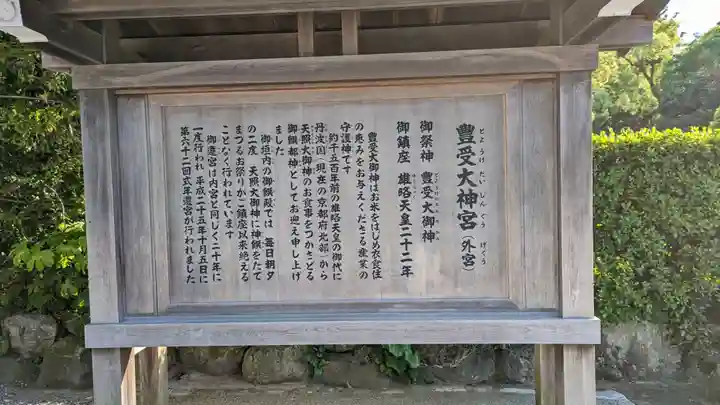 豊受大神宮（外宮）
とようけだいじんぐう げくう
御祭神 豊受大御神
御鎮座 雄略天皇二十二年
豊受大御神はお米をはじめ衣食住
の恵みをお与えくださる産業の
守護神です
約千五百年前の雄略天皇の御代に
丹波国（現在の京都府北部）から
天照大御神のお食事をつかさどる
御饌都神としてお迎え申し上げ
ました
御垣内の御饌殿では 毎日朝夕
の二度 天照大御神に神饌をたて
まつるお祭りがご鎮座以来絶える
ことなく行われています
御遷宮は内宮と同じく二十年に
一度行われ 平成二十五年十月五日に
第六十二回式年遷宮が行われました